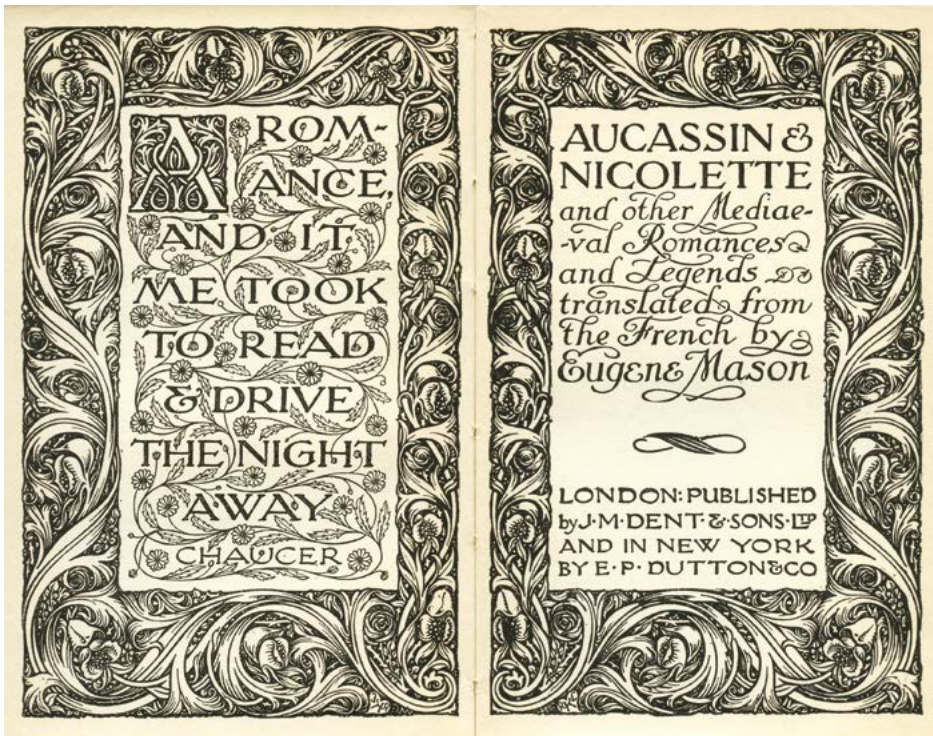 A ROM-
ANCE,
AND IT
ME TOOK
TO READ
& DRIVE
THE NIGHT
AWAY
CHAUCER
AUCASSIN &
NICOLETTE
and other Mediae-
-val Romances
and Legends
translated from
the French by
Eugene Mason
LONDON: PUBLISHED
by J·M·DENT·&·SONS·LTD
AND IN NEW YORK
BY E·P·DUTTON&CO